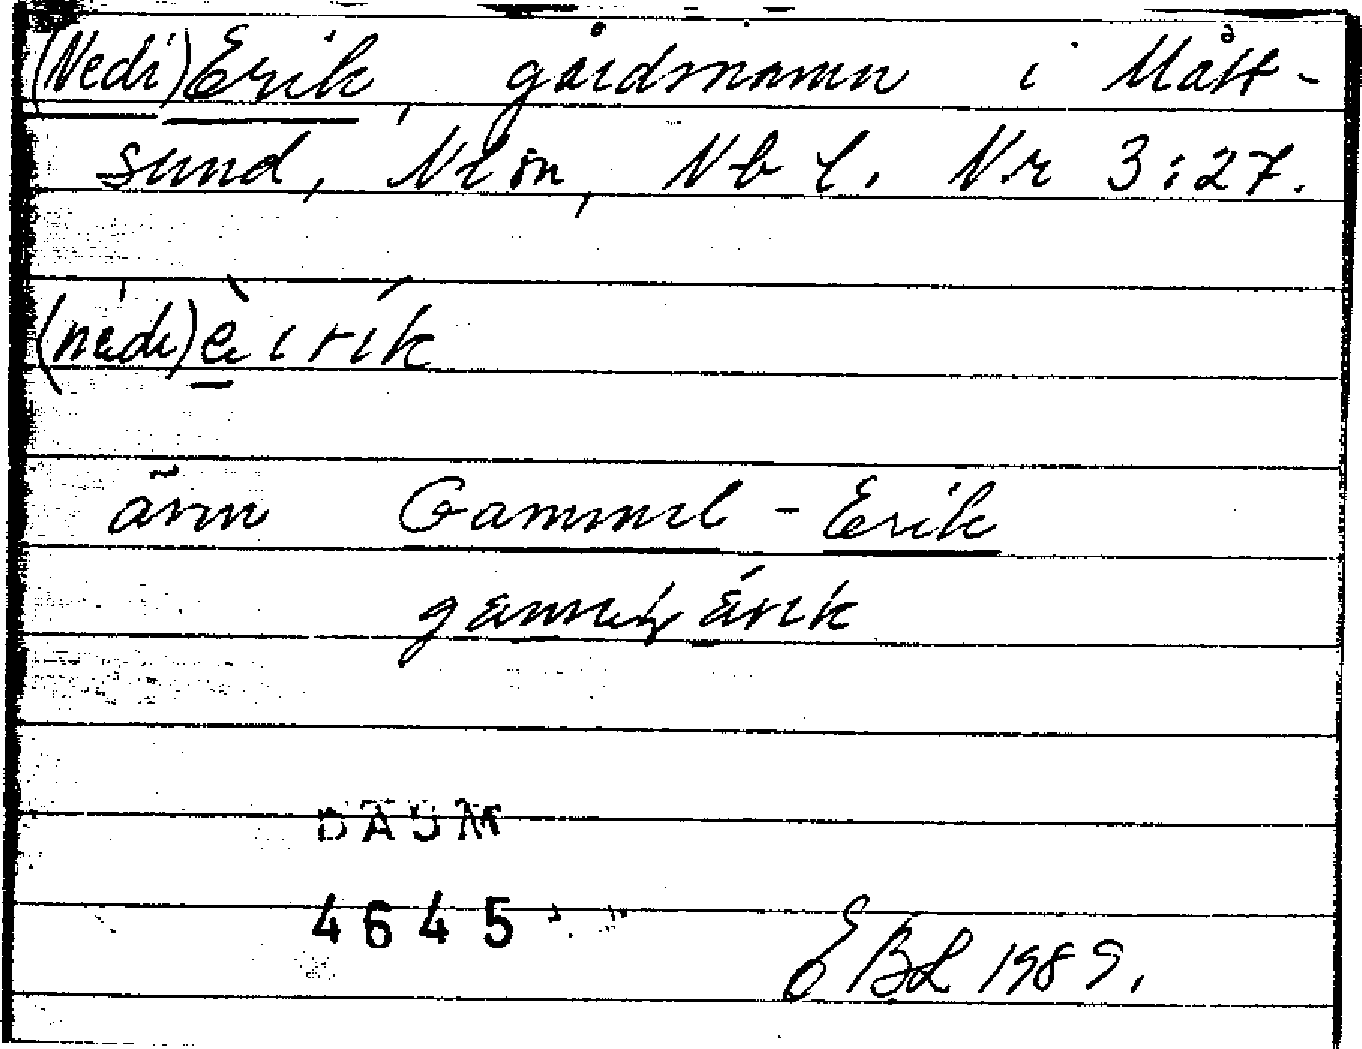 (Nedi)Erik, gårdsnamn i Mått-
sund, Nlm, Nb l. Nr 3:27.
(nedi)èirík
ävm Gammel-Erik
DAUM
4645
EBL 1989.